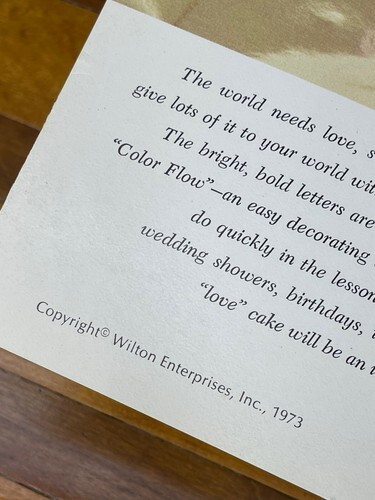 The world needs love, s
give lots of it to your world wit
The bright, bold letters are
"Color Flow"—an easy decorating
do quickly in the lesson
wedding showers, birthdays,
"love" cake will be an
Copyright© Wilton Enterprises, Inc., 1973